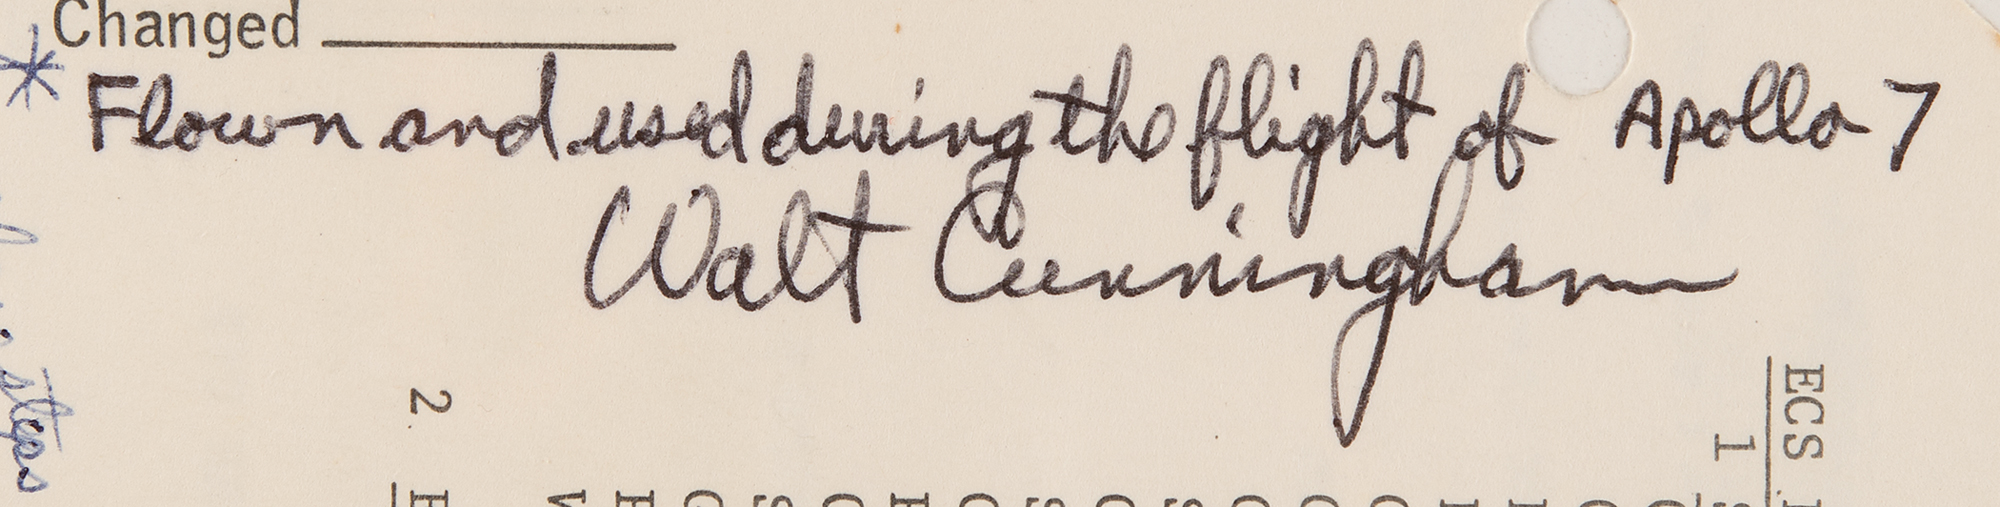 Changed
* Flown and used during the flight of Apollo 7
Walt Cunningham
ECS
1
2
steps